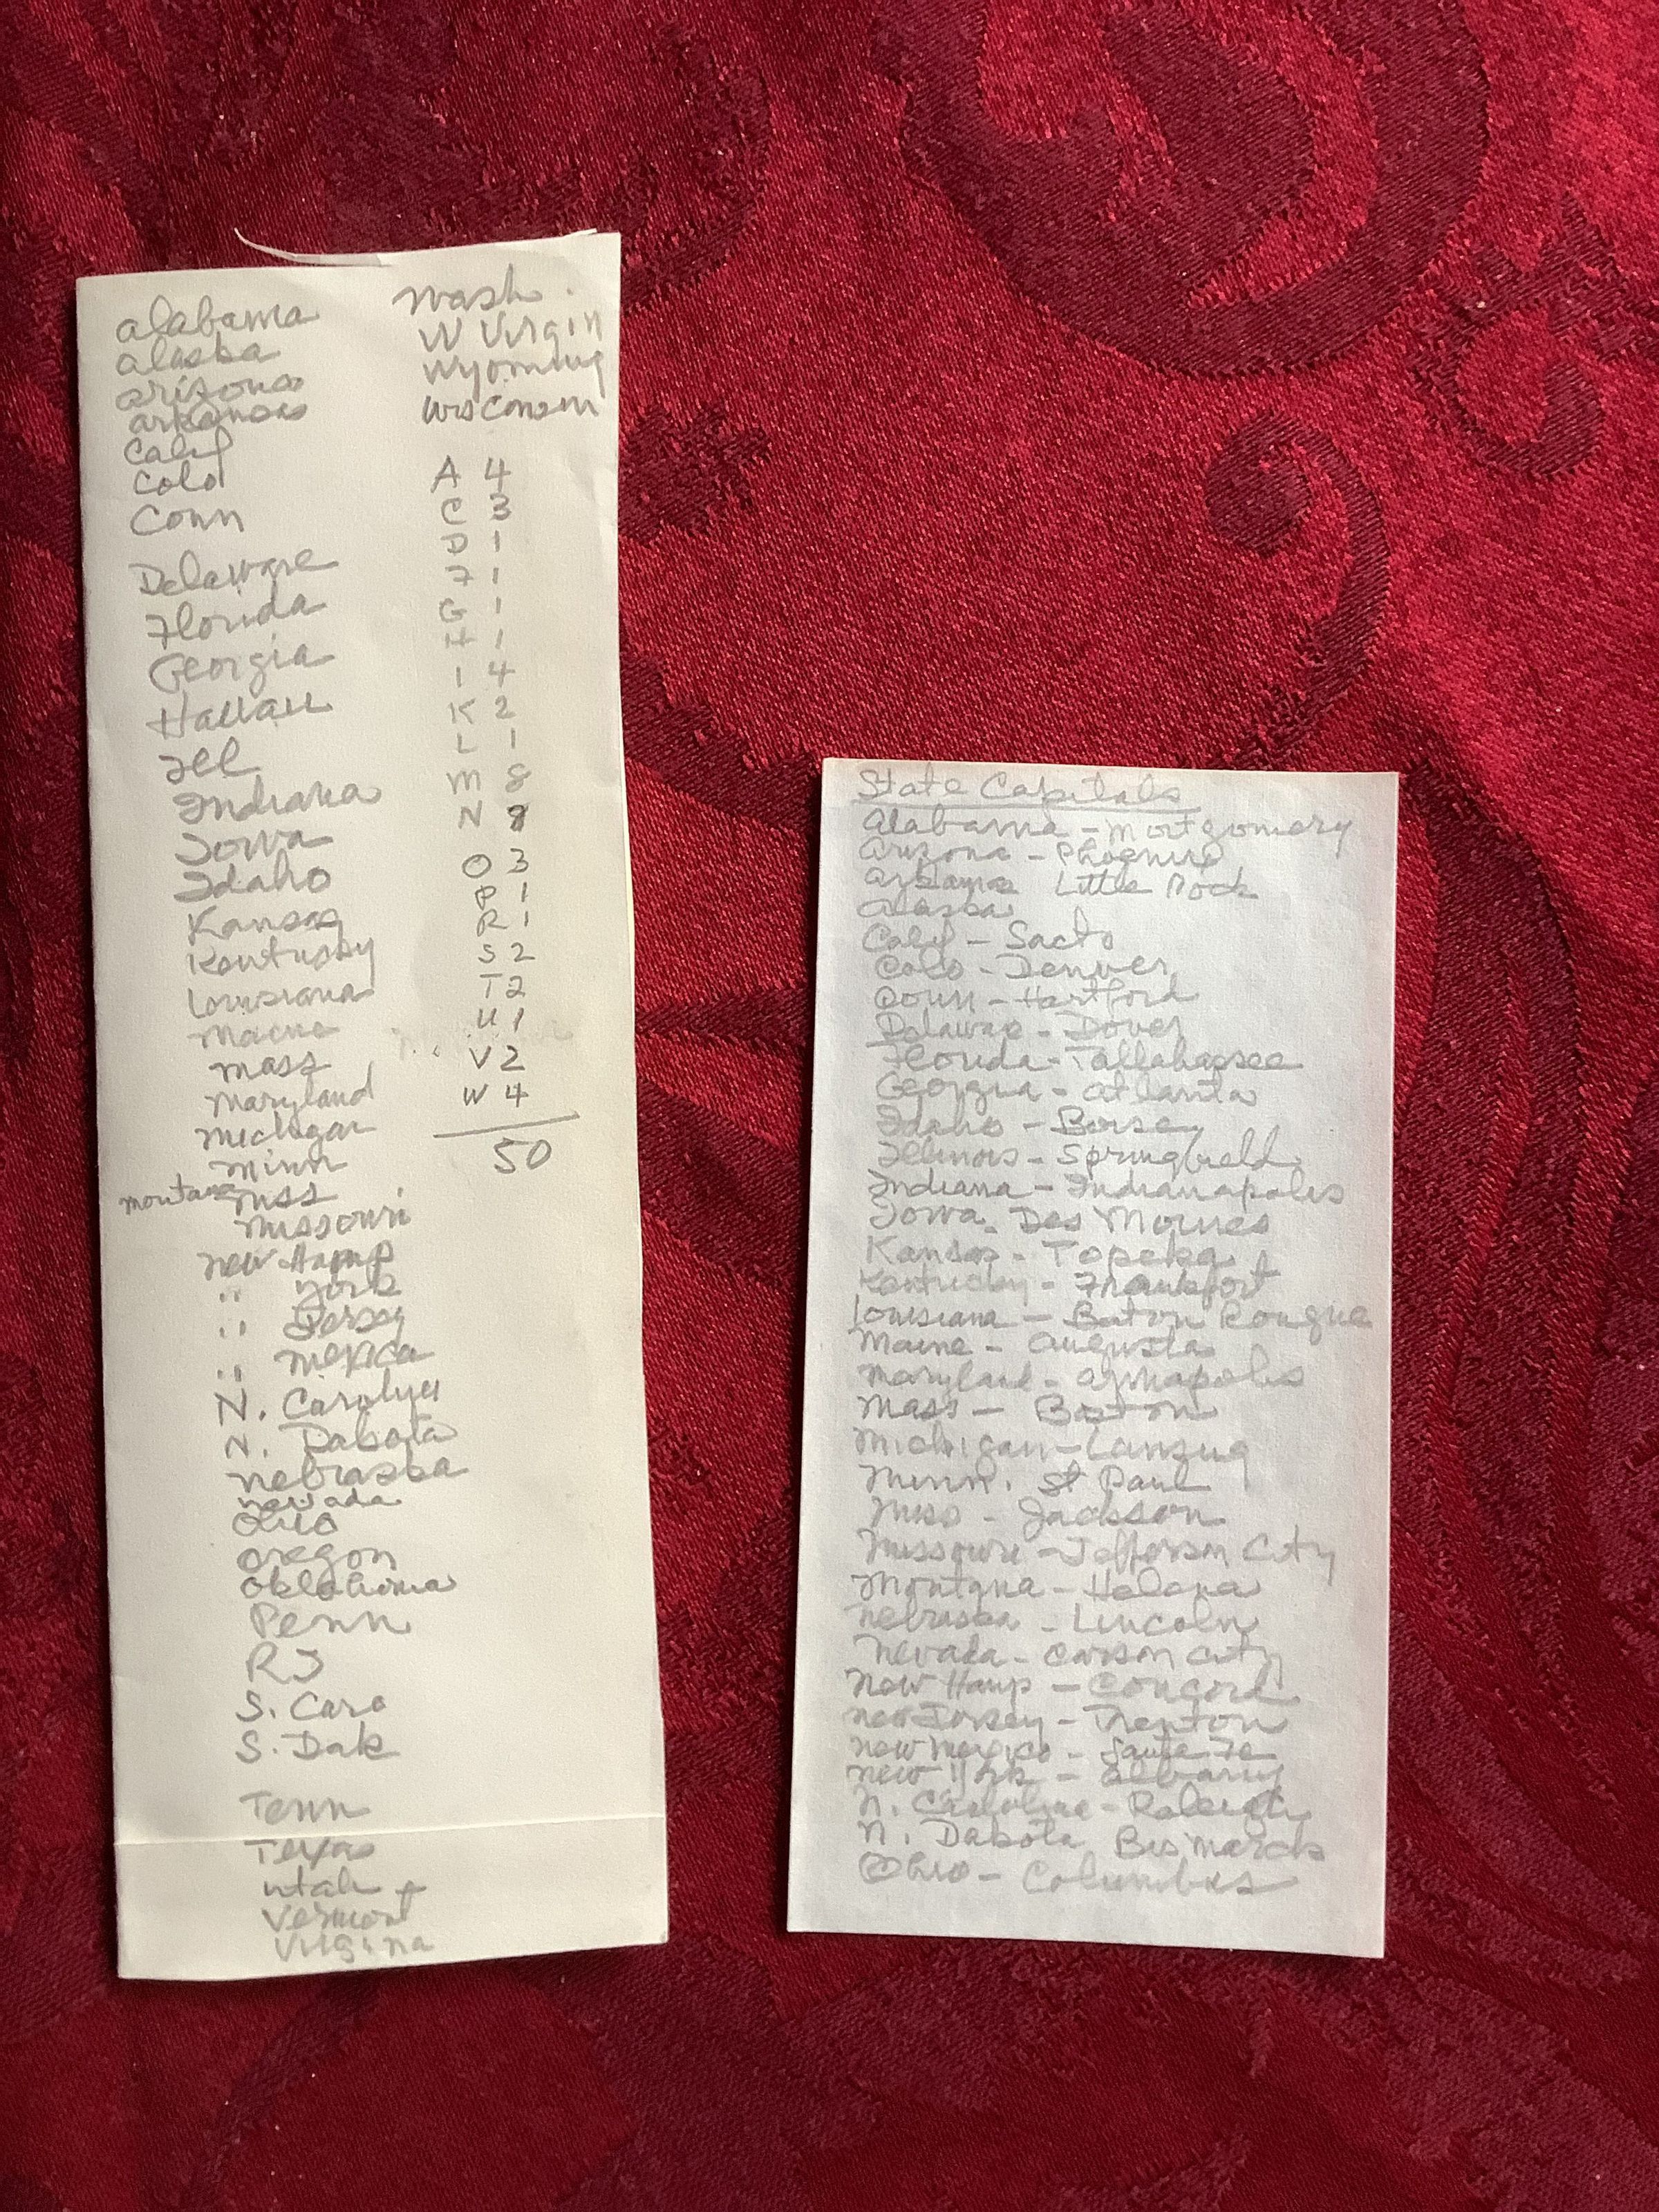 Alabama
Alaska
Arizona
Arkansas
Calif
Colo
Conn
Delaware
Florida
Georgia
Hawaii
Ill
Indiana
Iowa
Idaho
Kansas
Kentucky
Louisiana
Maine
Mass
Maryland
Michigan
Minn
Montana Miss
Missouri
New Hamp
" York
" Jersey
" Mexico
N. Carolya
N. Dakota
Nebraska
Nevada
Ohio
Oregon
Oklahoma
Penn
RI
S. Caro
S. Dak
Tenn
Texas
Utah
Vermont
Virgina
Wash.
W Virgin
Wyoming
Wisconsin
A 4
C 3
D 1
F 1
G 1
H 1
I 4
K 2
L 1
M 8
N 8
O 3
P 1
R 1
S 2
T 2
U 1
V 2
W 4
50
State Capitals
Alabama - Montgomery
Arizona - Phoenix
Arkansas Little Rock
Alaska
Calif - Sacto
Colo - Denver
Conn - Hartford
Delaware - Dover
Florida - Tallahassee
Georgia - Atlanta
Idaho - Boise
Illinois - Springfield
Indiana - Indianapolis
Iowa - Des Moines
Kansas - Topeka
Kentucky - Frankfort
Louisiana - Baton Rongue
Maine - Augusta
Maryland - Annapolis
Mass - Boston
Michigan - Lansing
Minn. St Paul
Miss - Jackson
Missouri - Jefferson City
Montana - Helena
Nebraska - Lincoln
Nevada - Carson City
New Hamp - Concord
New Jersey - Trenton
New Mexico - Sante Fe
New York - Albany
N. Carolina - Raleigh
N. Dakota Bismarck
Ohio - Columbus